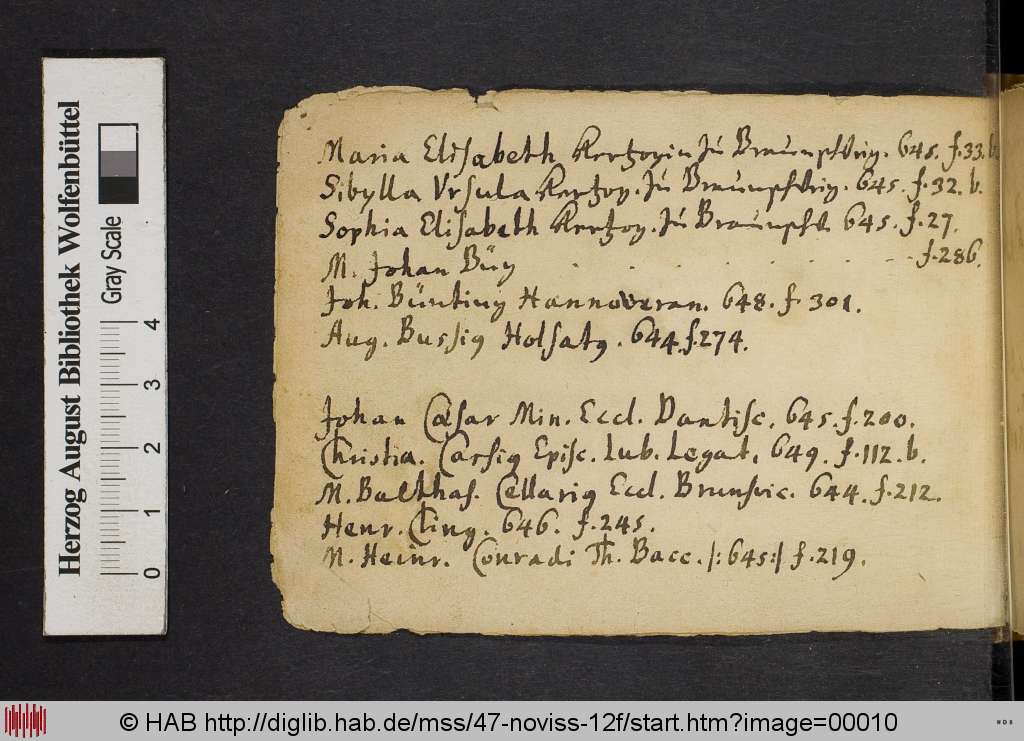 Maria Elisabeth Hertzogin zu Braunschwig. 645. f. 33. b.
Sibylla Vrsula Hertzog. zu Braunschwig. 645. f. 32. b.
Sophia Elisabeth Hertzog. zu Braunschw. 645. f. 27.
M. Johan Büy . . . . . . . . f. 286.
Joh. Bünting Hannoveran. 648. f. 301.
Aug. Bussig Holsatꝰ. 644. f. 274.
Johan Cæsar Min. Eccl. Dantisc. 645. f. 200.
Christia. Carsiꝰ Episc. Lub. Legat. 649. f. 112. b.
M. Balthas. Cellariꝰ Eccl. Brunsvic. 644. f. 212.
Henr. Cling. 646. f. 245.
M. Heinr. Conradi Th. Bacc. /: 645 :/ f. 219.
Herzog August Bibliothek Wolfenbüttel
Gray Scale
0 1 2 3 4
© HAB http://diglib.hab.de/mss/47-noviss-12f/start.htm?image=00010